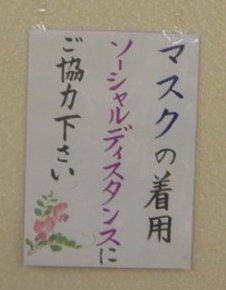 マスクの着用
ソーシャルディスタンスに
ご協力下さい